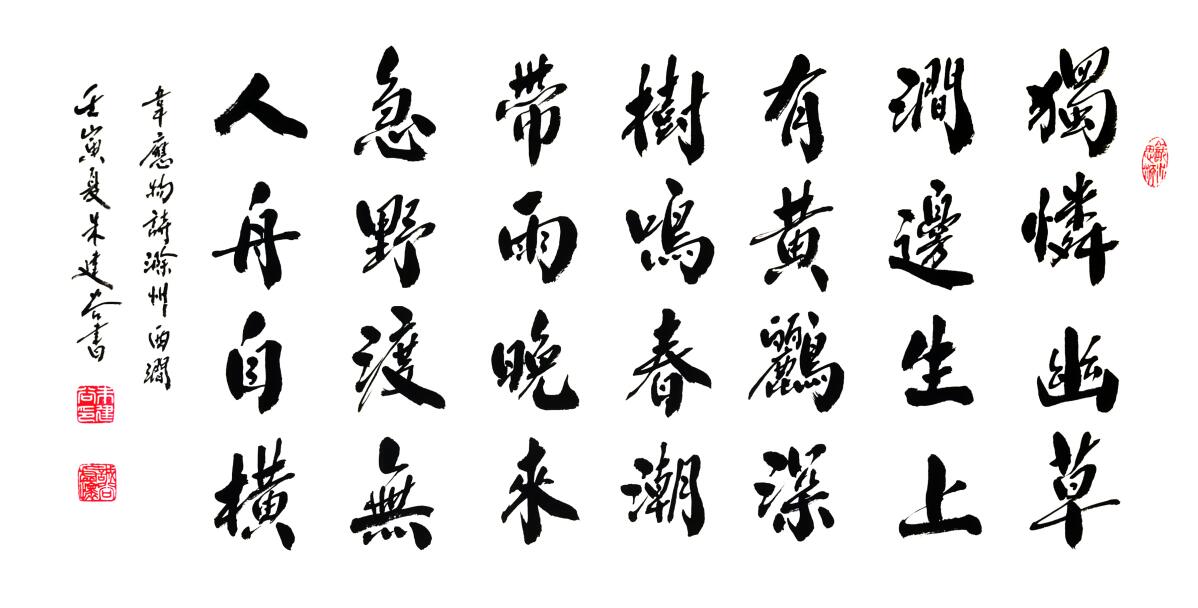 獨憐幽草
澗邊生上
有黃鸝深
樹鳴春潮
帶雨晚來
急野渡無
人舟自橫
韋應物詩滁州西澗
壬寅夏朱建谷書